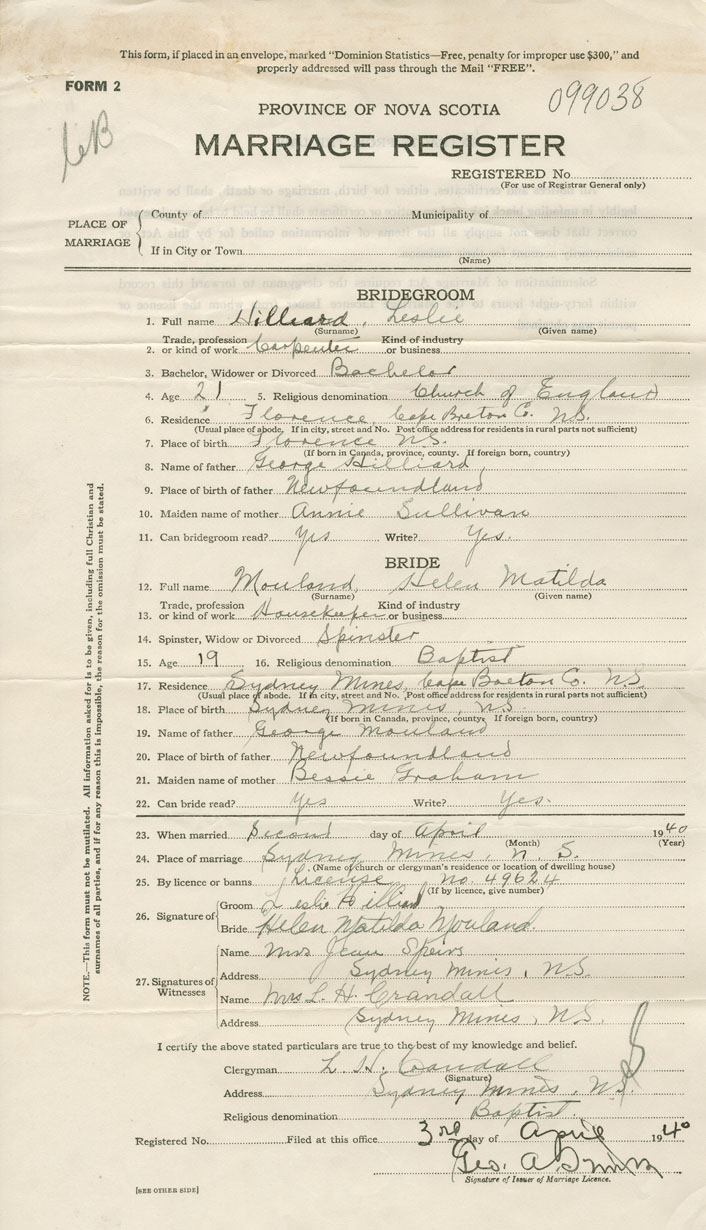 This form, if placed in an envelope, marked "Dominion Statistics—Free, penalty for improper use $300," and
properly addressed will pass through the Mail "FREE".
FORM 2
099038
PROVINCE OF NOVA SCOTIA
CB
MARRIAGE REGISTER
REGISTERED No.
(For use of Registrar General only)
PLACE OF MARRIAGE
County of Municipality of
If in City or Town
(Name)
BRIDEGROOM
1. Full name Hilliard, Leslie
(Surname) (Given name)
2. Trade, profession or kind of work Carpenter Kind of industry or business
3. Bachelor, Widower or Divorced Bachelor
4. Age 21 5. Religious denomination Church of England
6. Residence Florence, Cape Breton Co. N.S.
(Usual place of abode. If in city, street and No. Post office address for residents in rural parts not sufficient)
7. Place of birth Florence N.S.
(If born in Canada, province, county. If foreign born, country)
8. Name of father George Hilliard
9. Place of birth of father Newfoundland
10. Maiden name of mother Annie Sullivan
11. Can bridegroom read? Yes Write? Yes.
BRIDE
12. Full name Mouland, Helen Matilda
(Surname) (Given name)
13. Trade, profession or kind of work Housekeeper Kind of industry or business
14. Spinster, Widow or Divorced Spinster
15. Age 19 16. Religious denomination Baptist
17. Residence Sydney Mines, Cape Breton Co. N.S.
(Usual place of abode. If in city, street and No. Post office address for residents in rural parts not sufficient)
18. Place of birth Sydney Mines, N.S.
(If born in Canada, province, county. If foreign born, country)
19. Name of father George Mouland
20. Place of birth of father Newfoundland
21. Maiden name of mother Bessie Graham
22. Can bride read? Yes Write? Yes.
23. When married Second day of April 1940
(Month) (Year)
24. Place of marriage Sydney Mines, N. S.
(Name of church or clergyman's residence or location of dwelling house)
25. By licence or banns License no. 49624
(If by licence, give number)
26. Signature of
Groom Leslie Hilliard
Bride Helen Matilda Mouland.
27. Signatures of Witnesses
Name Mrs Jean Speirs
Address Sydney Mines, N.S.
Name Mrs L. H. Crandall
Address Sydney Mines, N.S.
I certify the above stated particulars are true to the best of my knowledge and belief.
Clergyman L. H. Crandall
(Signature)
Address Sydney Mines, N.S.
Religious denomination Baptist.
Registered No. Filed at this office 3rd day of April 1940
Geo. A
Signature of Issuer of Marriage Licence.
[SEE OTHER SIDE]
NOTE.—This form must not be mutilated. All information asked for is to be given, including full Christian and
surnames of all parties, and if for any reason this is impossible, the reason for the omission must be stated.